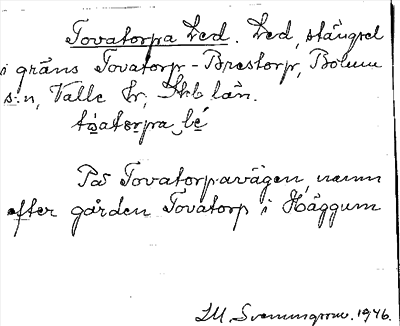 Tovatorpa Led. Led, stängsel
i gräns Tovatorp - Brestorp, Bolum
s:n, Valle hr, Skb län.
tòatorpa lé
På Tovatorpavägen, namn
efter gården Tovatorp i Häggum
1946.